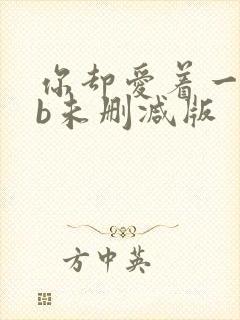 你却爱着一
b未删减版
方中英